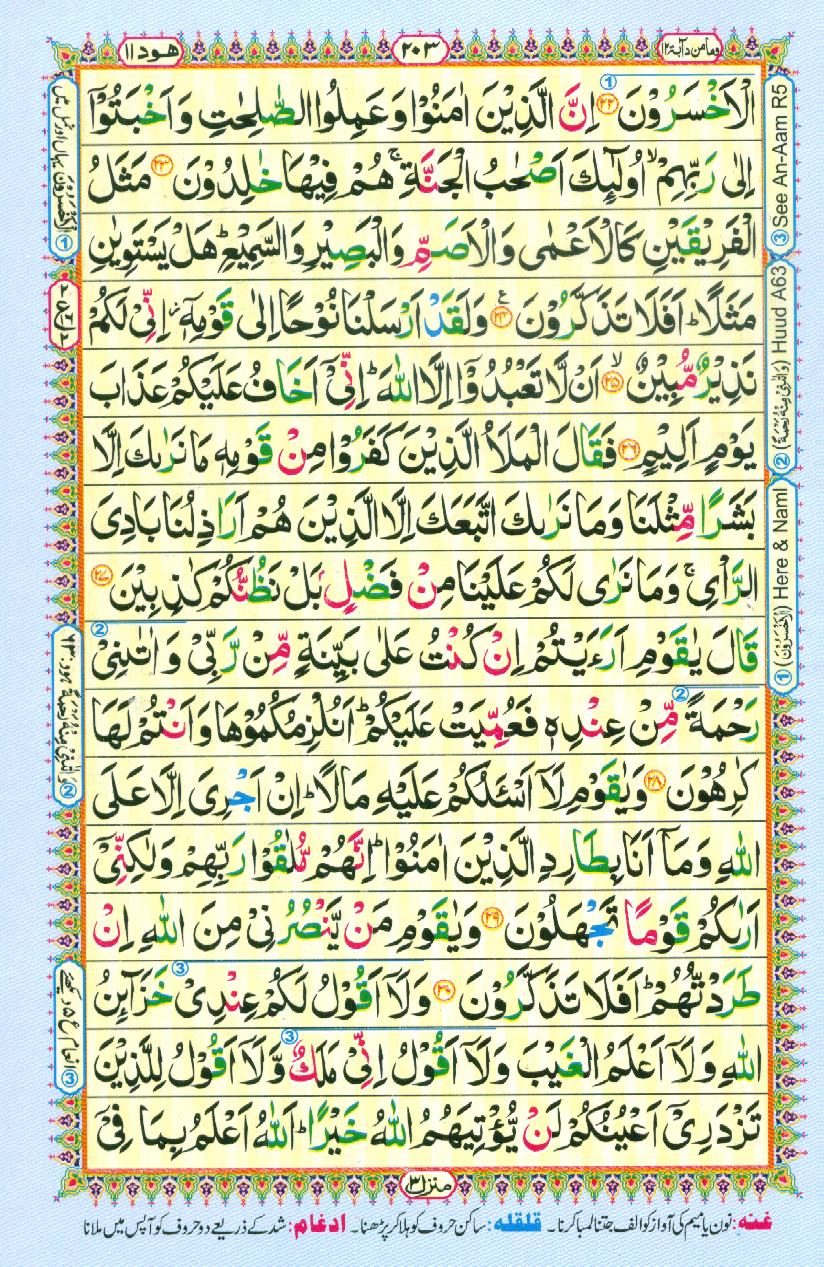 ومامن دآبة ۱۲
۲۰۳
هود ۱۱
الْاَخْسَرُوْنَ ۲۲ اِنَّ الَّذِيْنَ اٰمَنُوْا وَعَمِلُوا الصّٰلِحٰتِ وَاَخْبَتُوْۤا
اِلٰى رَبِّهِمْ ۙ اُولٰٓئِكَ اَصْحٰبُ الْجَنَّةِ ۚ هُمْ فِيْهَا خٰلِدُوْنَ ۲۳ مَثَلُ
الْفَرِيْقَيْنِ كَالْاَعْمٰى وَالْاَصَمِّ وَالْبَصِيْرِ وَالسَّمِيْعِ ؕ هَلْ يَسْتَوِيٰنِ
مَثَلًا ؕ اَفَلَا تَذَكَّرُوْنَ ۲۴ وَلَقَدْ اَرْسَلْنَا نُوْحًا اِلٰى قَوْمِهٖۤ اِنِّيْ لَكُمْ
نَذِيْرٌ مُّبِيْنٌ ۙ ۲۵ اَنْ لَّا تَعْبُدُوْۤا اِلَّا اللّٰهَ ؕ اِنِّيْۤ اَخَافُ عَلَيْكُمْ عَذَابَ
يَوْمٍ اَلِيْمٍ ۲۶ فَقَالَ الْمَلَاُ الَّذِيْنَ كَفَرُوْا مِنْ قَوْمِهٖ مَا نَرٰىكَ اِلَّا
بَشَرًا مِّثْلَنَا وَمَا نَرٰىكَ اتَّبَعَكَ اِلَّا الَّذِيْنَ هُمْ اَرَاذِلُنَا بَادِيَ
الرَّاْيِ ۚ وَمَا نَرٰى لَكُمْ عَلَيْنَا مِنْ فَضْلٍۭ بَلْ نَظُنُّكُمْ كٰذِبِيْنَ ۲۷
قَالَ يٰقَوْمِ اَرَءَيْتُمْ اِنْ كُنْتُ عَلٰى بَيِّنَةٍ مِّنْ رَّبِّيْ وَاٰتٰىنِيْ
رَحْمَةً مِّنْ عِنْدِهٖ فَعُمِّيَتْ عَلَيْكُمْ ؕ اَنُلْزِمُكُمُوْهَا وَاَنْتُمْ لَهَا
كٰرِهُوْنَ ۲۸ وَيٰقَوْمِ لَاۤ اَسْـَٔلُكُمْ عَلَيْهِ مَالًا ؕ اِنْ اَجْرِيَ اِلَّا عَلَى
اللّٰهِ وَمَاۤ اَنَا بِطَارِدِ الَّذِيْنَ اٰمَنُوْا ؕ اِنَّهُمْ مُّلٰقُوْا رَبِّهِمْ وَلٰكِنِّيْۤ
اَرٰىكُمْ قَوْمًا تَجْهَلُوْنَ ۲۹ وَيٰقَوْمِ مَنْ يَّنْصُرُنِيْ مِنَ اللّٰهِ اِنْ
طَرَدْتُّهُمْ ؕ اَفَلَا تَذَكَّرُوْنَ ۳۰ وَلَاۤ اَقُوْلُ لَكُمْ عِنْدِيْ خَزَآئِنُ
اللّٰهِ وَلَاۤ اَعْلَمُ الْغَيْبَ وَلَاۤ اَقُوْلُ اِنِّيْ مَلَكٌ وَّلَاۤ اَقُوْلُ لِلَّذِيْنَ
تَزْدَرِيْۤ اَعْيُنُكُمْ لَنْ يُّؤْتِيَهُمُ اللّٰهُ خَيْرًا ؕ اَللّٰهُ اَعْلَمُ بِمَا فِيْۤ
① (اَلْاَخْسَرُوْنَ) Here & Naml
② (وَاٰتٰنِيْ مِنْهُ رَحْمَةً) Huud A63
③ See An-Aam R5
① اَلْاَخْسَرُوْنَ یہاں اور نمل میں
② وَاٰتٰنِيْ مِنْهُ رَحْمَةً ہود: ۶۳
③ انعام ع ۵ دیکھئے
منزل ۳
غنه: نون یا میم کی آواز کو الف جتنا لمبا کرنا۔ قلقله: ساکن حروف کو ہلا کر پڑھنا۔ ادغام: شد کے ذریعے دو حروف کو آپس میں ملانا